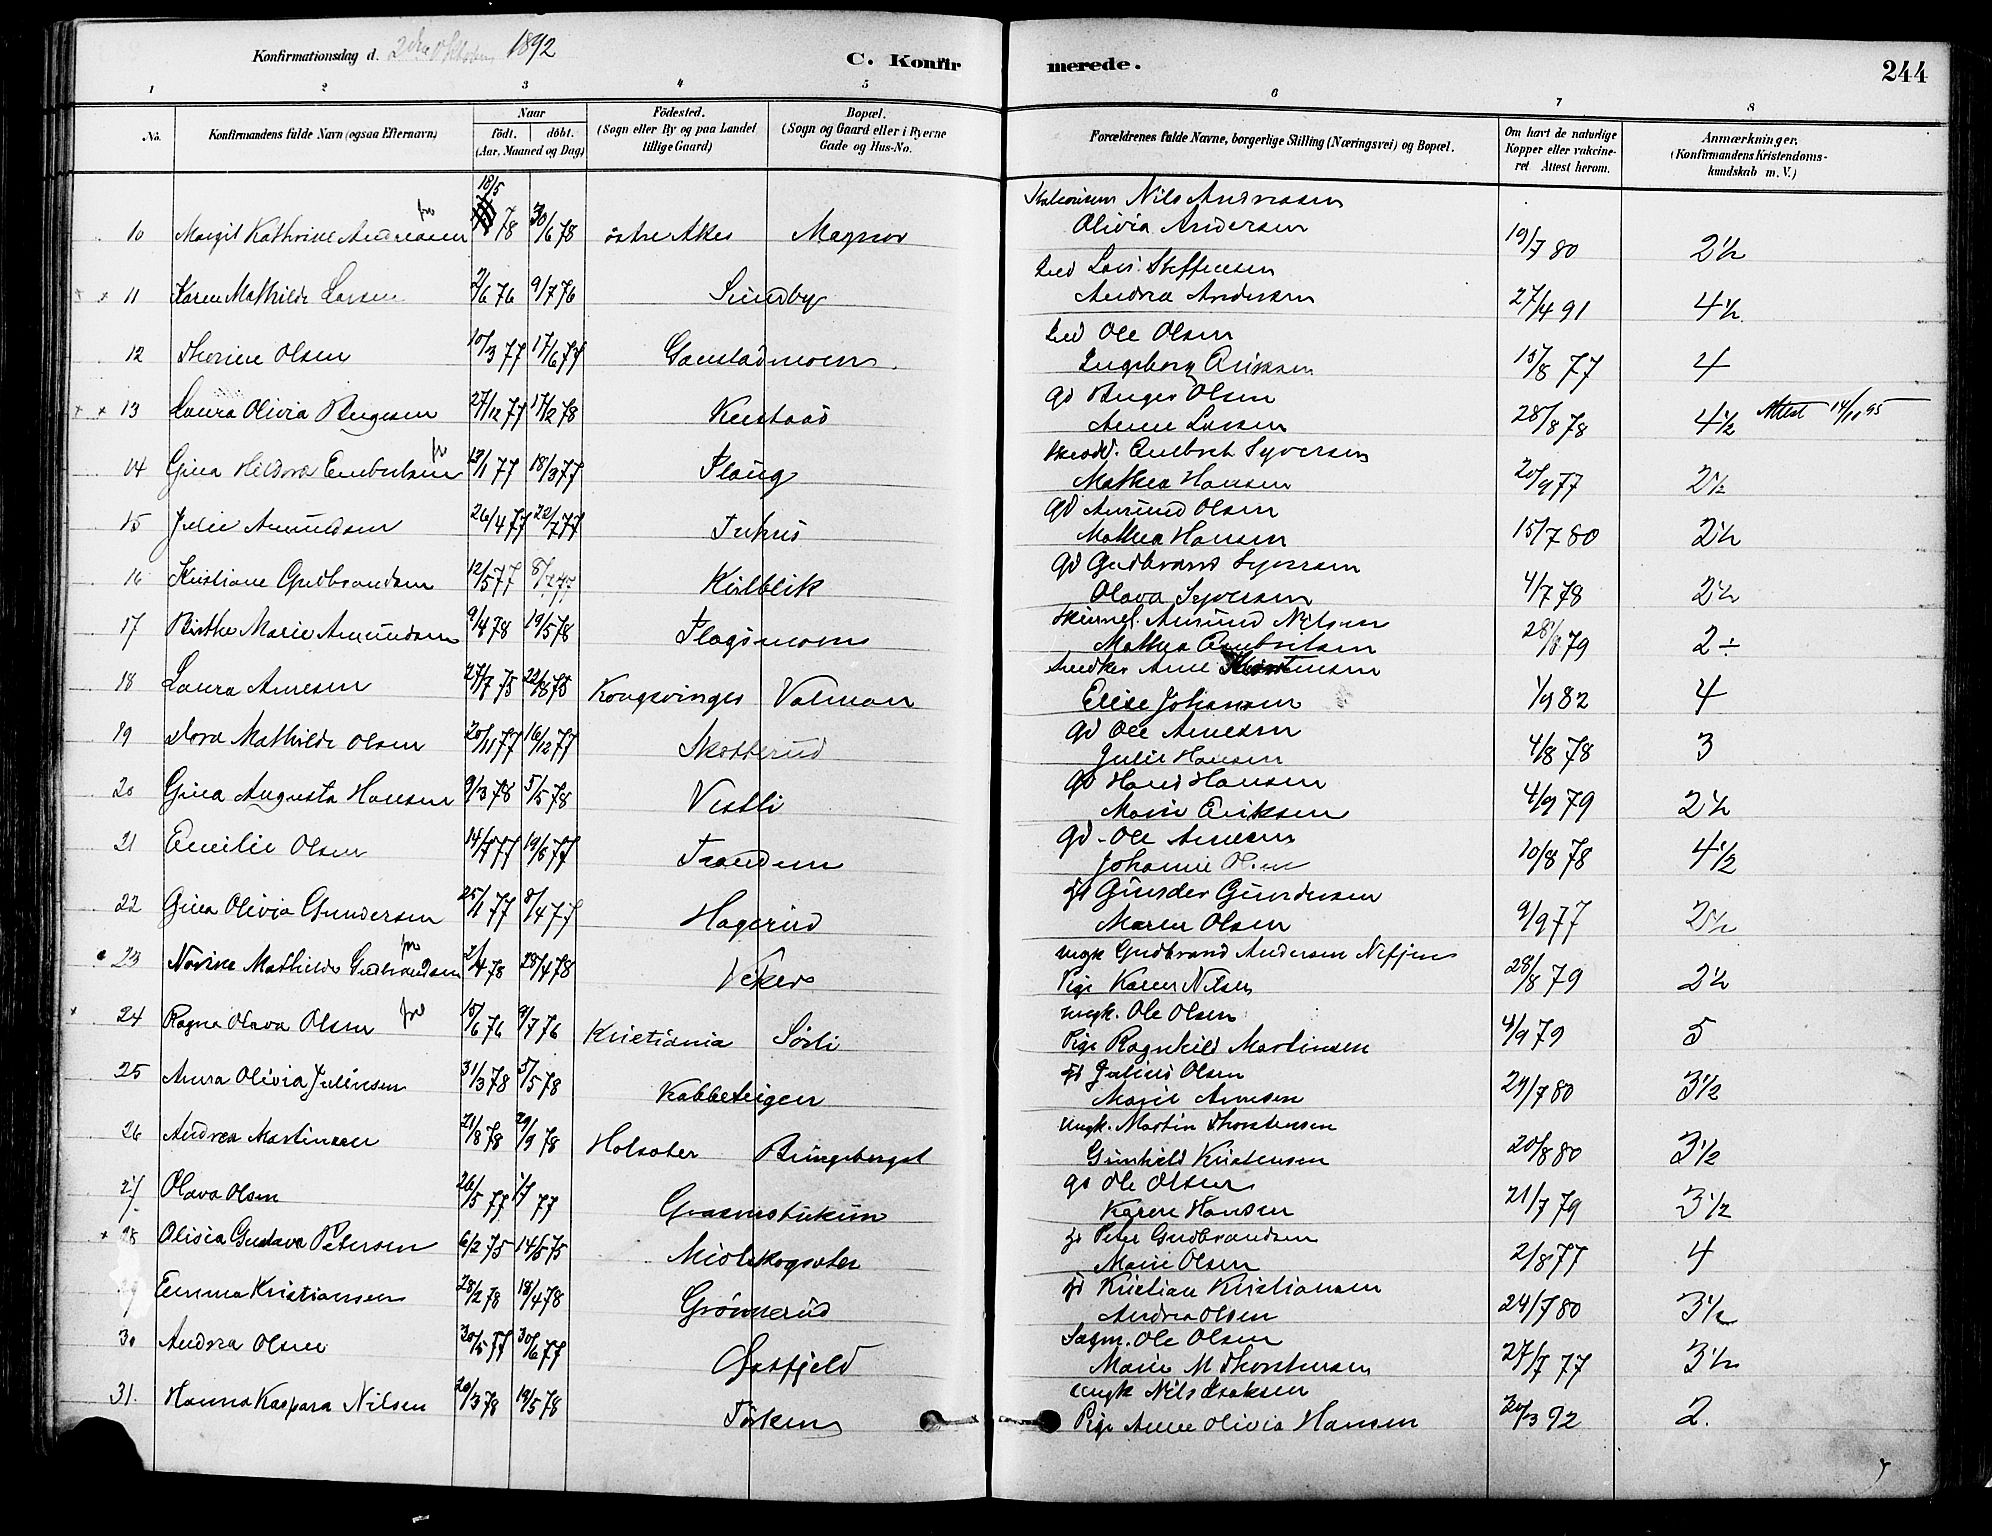 Konfirmationsdag d. 2den Oktober 1892
C. Konfir
merede.
244
1 2 3 4 5 6 7 8
No.
Konfirmandens fulde Navn (ogsaa Efternavn)
Naar
født. døbt.
(Aar, Maaned og Dag)
Fødested.
(Sogn eller By og paa Landet
tillige Gaard)
Bopæl.
(Sogn og Gaard eller i Byerne
Gade og Hus-No.
Forældrenes fulde Navne, borgerlige Stilling (Næringsvei) og Bopæl.
Om havt de naturlige
Kopper eller vakcine-
ret Attest herom.
Anmærkninger.
(Konfirmandens Kristendoms-
kundskab m. V.)
10 Margit Kathrine Andreasen 18/5 78 30/6 78 østre Aker Magnor Nils Andreasen
Olivia Andersen 19/7 80 2½
11 Karen Mathilde Larsen 2/6 76 9/7 76 Sundby Lars Steffensen
Andrea Andersen 27/4 91 4½
12 Thorine Olsen 10/3 77 17/6 77 Ole Olsen
Ingeborg Eriksen 15/8 77 4
13 Laura Olivia Birgesen 27/12 77 17/2 78 gd Birger Olsen
Anne Larsen 28/8 78 4½ Attest 14/11 95
14 Gina Hildora Embretsen 13/1 77 18/3 77 Embret Syversen
Mathea Hansen 20/9 77 2½
15 Julie Amundsen 26/4 77 22/7 77 gd Amund Olsen
Mathea Hansen 15/7 80 2½
16 Kristiane Gudbrandsen 12/5 77 gd Gudbrand Syversen
Olava Syversen 4/7 78 2½
17 Birthe Marie Amundsen 9/4 78 19/5 78 Amund Nilsen
Mathea Embretsen 28/8 79 2÷
18 Laura Arnesen 27/7 75 22/8 75 Kongsvinger Valmoen Arne
Elise Johansen 1/9 82 4
19 Dora Mathilde Olsen 20/11 77 16/12 77 Skotterud gd Ole Arnesen
Julie Hansen 4/8 78 3
20 Gina Augusta Hansen 9/3 78 5/5 78 Vestli gd Hans Hansen
Marie Eriksen 4/9 79 2½
21 Emilie Olsen 14/7 77 19/8 77 Trandem gd. Ole Arnesen
Johanne Olsen 10/8 78 4½
22 Gina Olivia Gundersen 25/1 77 8/4 77 Hagerud Gunder Gundersen
Maren Olsen 9/9 77 2½
23 Norine Mathilde Gudbrandsen 2/4 78 28/4 78 Veker ungk Gudbrand Andersen
Pige Karen Nilsen 28/8 79 2½
24 Ragna Olava Olsen 15/6 76 9/7 76 Kristiania Sørli ungk. Ole Olsen
Pige Ragnhild Martinsen 4/9 79 5
25 Anna Olivia Julinsen 31/3 78 5/5 78 Kabbeteigen Julius Olsen
Marie Arnesen 29/7 80 3½
26 Andrea Martinsen 21/8 78 29/9 78 Holsæter Bingeberget ungk. Martin Thorstensen
Gunhild Kristensen 20/8 80 3½
27 Olava Olsen 26/5 77 1/7 77 gd Ole Olsen
Karen Hansen 21/7 79 3½
28 Olisia Gustava Petersen 6/2 75 14/5 75 Peter Gudbrandsen
Marie Olsen 2/8 77 4
29 Emma Kristiansen 28/2 78 18/4 78 Grønnerud Kristian Kristiansen
Andrea Olsen 24/7 80 3½
30 Andrea Olsen 20/5 77 30/6 77 Ole Olsen
Marie M Thorstensen 27/7 77 3½
31. Hanna Kaspara Nilsen 20/3 78 19/5 78 ungk Nils Isaksen
Pige Anne Olivia Hansen 20/3 92 2.